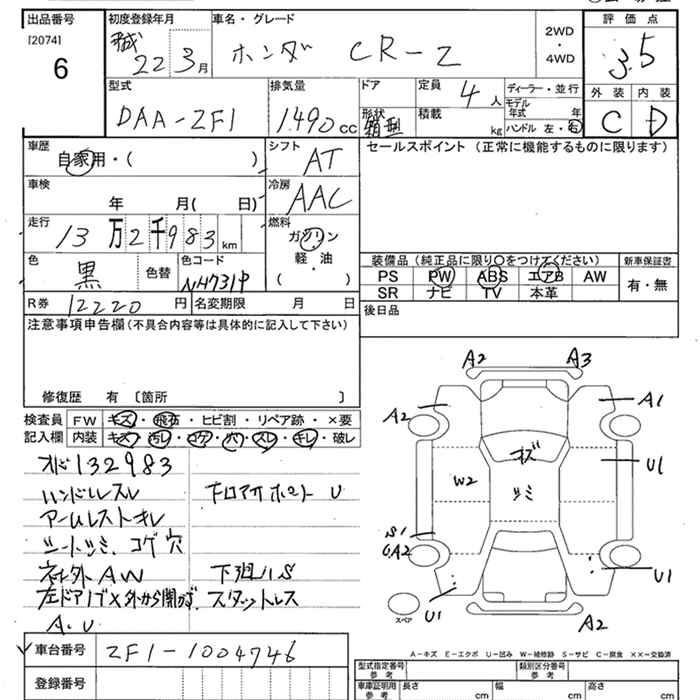 出品番号 初度登録年月 車名・グレード 評価点
[2074] 平成 22 3月 ホンダ CR-Z 2WD・4WD 3.5
6
型式 排気量 ドア 定員 4人 ディーラー・並行 外装 内装
DAA-ZF1 1490cc 形状 箱型 積載 kg モデル年式 年 C D
ハンドル 左・右
車歴 シフト セールスポイント (正常に機能するものに限ります)
自家用・( ) AT
車検 冷房
年 月( 日) AAC
走行 燃料
13万2千983km ガソリン
軽・油
( )
色 色コード 装備品(純正品に限り○をつけてください) 新車保証書
黒 色替 NH731P PS PW ABS エアB AW 有・無
SR ナビ TV 本革
R券 12220円 名変期限 月 日 後日品
注意事項申告欄(不具合内容等は具体的に記入して下さい)
修復歴 有 〔箇所 〕
検査員 FW キズ・飛石・ヒビ割・リペア跡・×要
記入欄 内装 キズ・汚レ・コゲ・穴・スレ・キレ・破レ
オド132983
ハンドルスレ
アームレストキレ
シートツミ、コゲ穴
社外AW 下廻りS
左ドアノブ×外から開かず、スタットレス
A.U
A2 A3
A2 A1
W2 ツミ U1
S1
A2
U1 U1
スペア A2
A-キズ E-エクボ U-凹み W-補修跡 S-サビ C-腐食 ××-交換済
車台番号 ZF1-1004746
登録番号
型式指定番号 参考 類別区分番号 参考
車庫証明用 参考 長さ cm 幅 cm 高さ cm